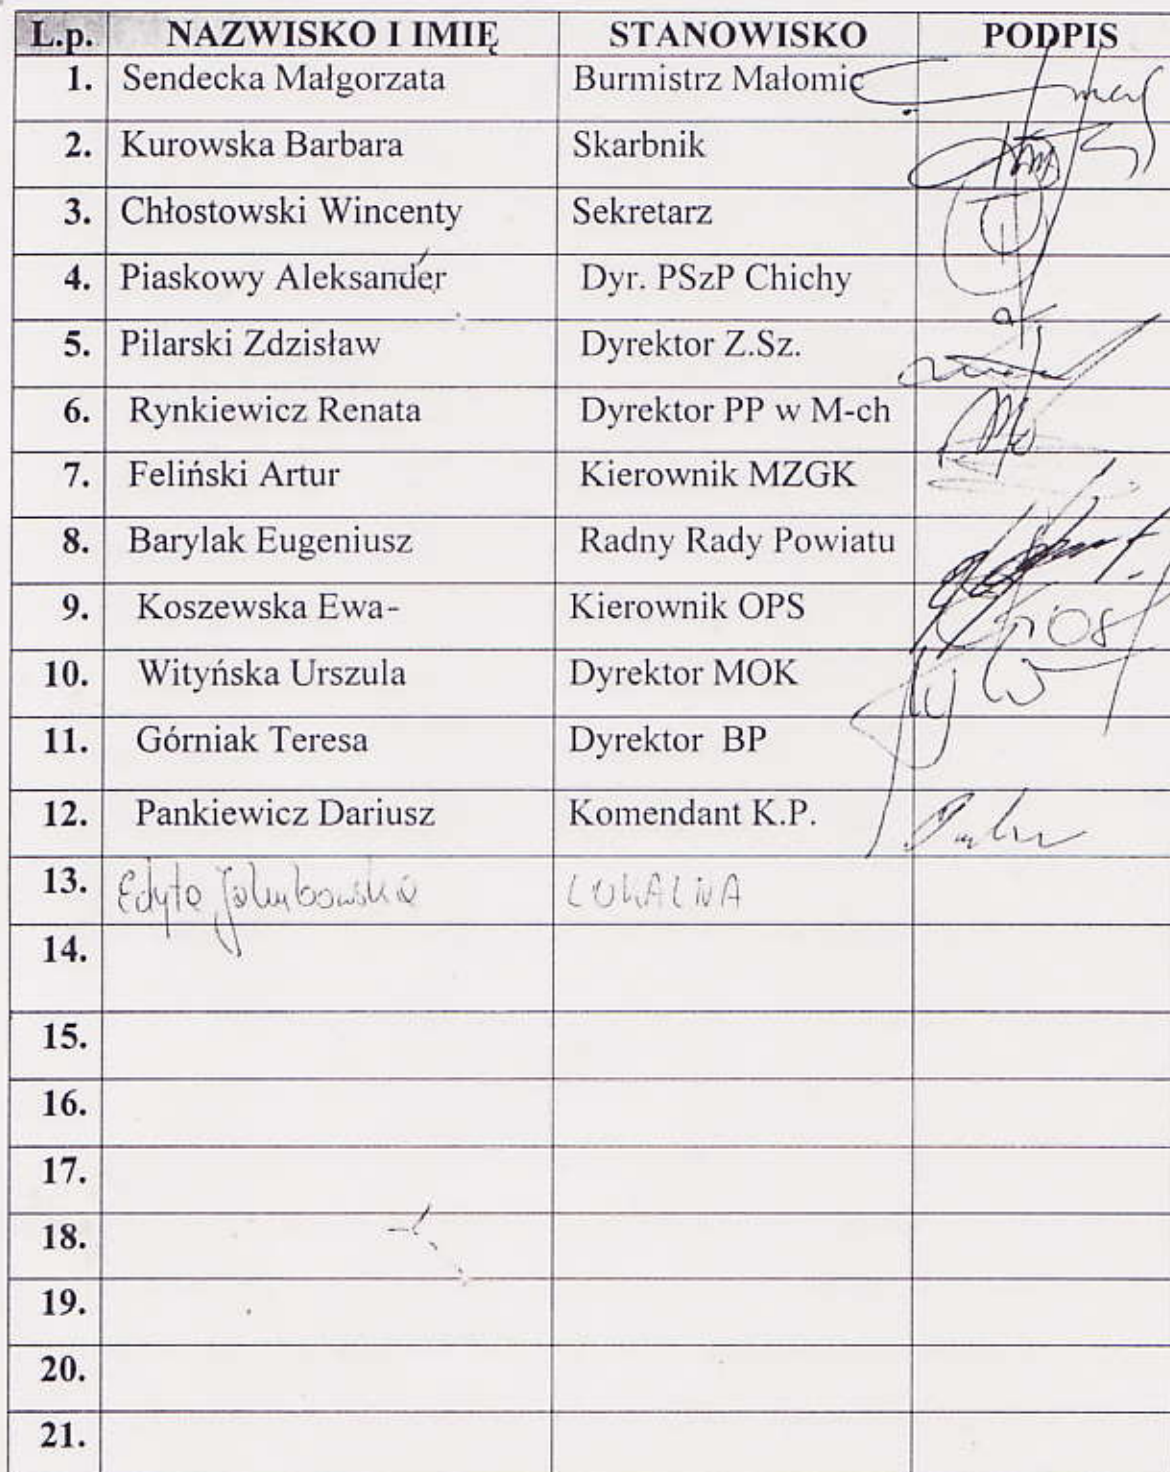 L.p. NAZWISKO I IMIĘ STANOWISKO PODPIS
1. Sendecka Małgorzata Burmistrz Małomic
2. Kurowska Barbara Skarbnik
3. Chłostowski Wincenty Sekretarz
4. Piaskowy Aleksander Dyr. PSzP Chichy
5. Pilarski Zdzisław Dyrektor Z.Sz.
6. Rynkiewicz Renata Dyrektor PP w M-ch
7. Feliński Artur Kierownik MZGK
8. Barylak Eugeniusz Radny Rady Powiatu
9. Koszewska Ewa- Kierownik OPS
10. Wityńska Urszula Dyrektor MOK
11. Górniak Teresa Dyrektor BP
12. Pankiewicz Dariusz Komendant K.P.
13. Edyta Jakubowska LOKALNA
14.
15.
16.
17.
18.
19.
20.
21.